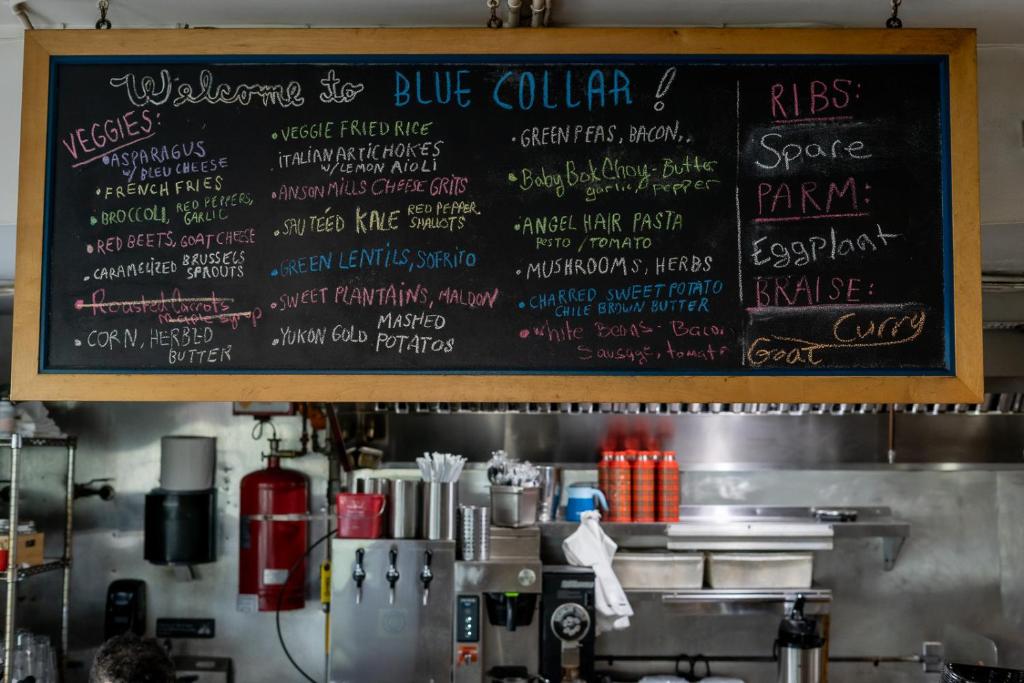 Welcome to BLUE COLLAR!
VEGGIES:
• ASPARAGUS
W/ BLEU CHEESE
• FRENCH FRIES
• BROCCOLI, RED PEPPERS,
GARLIC
• RED BEETS, GOAT CHEESE
• CARAMELIZED BRUSSELS
SPROUTS
• Roasted Carrots
• CORN, HERBED
BUTTER
• VEGGIE FRIED RICE
ITALIAN ARTICHOKES
W/ LEMON AIOLI
• ANSON MILLS CHEESE GRITS
• SAUTEÉD KALE RED PEPPER
SHALLOTS
• GREEN LENTILS, SOFRITO
• SWEET PLANTAINS, MALDON
• YUKON GOLD MASHED
POTATOS
• GREEN PEAS, BACON,.
• Baby Bok Choy - Butter
garlic, pepper
• ANGEL HAIR PASTA
PESTO / TOMATO
• MUSHROOMS, HERBS
• CHARRED SWEET POTATO
CHILE BROWN BUTTER
• White Beans - Bacon
Sausage, tomato
RIBS:
Spare
PARM:
Eggplant
BRAISE:
Curry
Goat